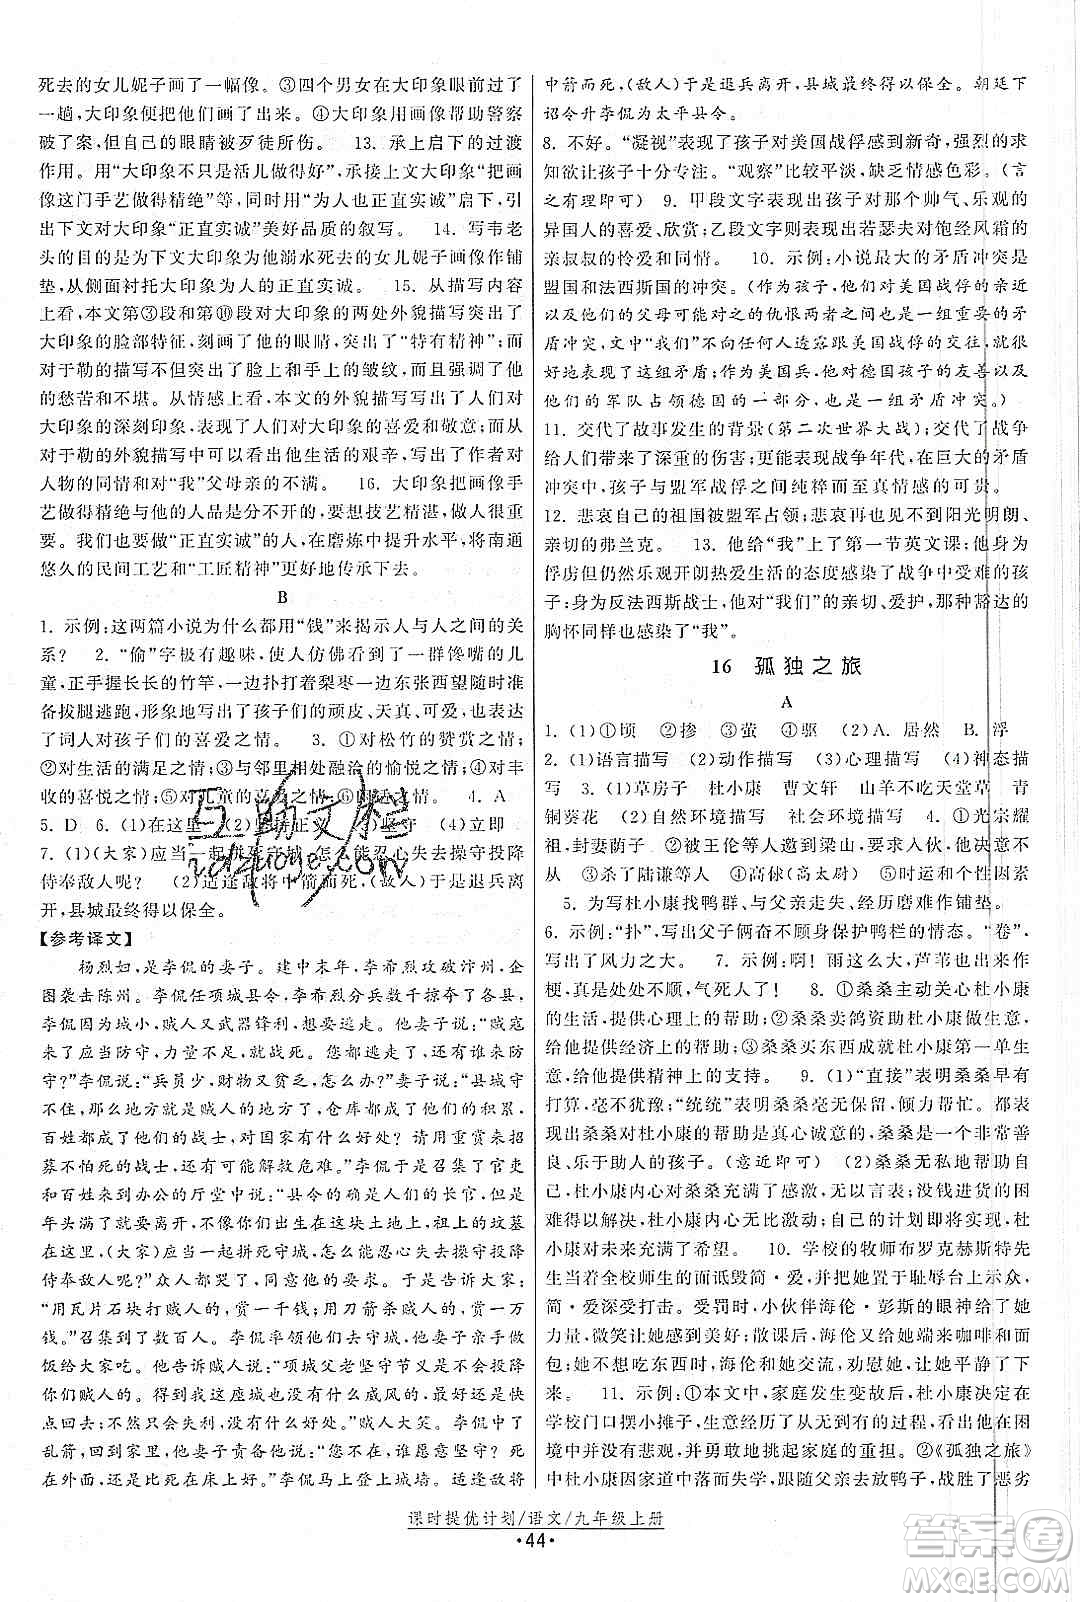 死去的女儿妮子画了一幅像。③四个男女在大印象眼前过了
一趟,大印象便把他们画了出来。④大印象用画像帮助警察
破了案,但自己的眼睛被歹徒所伤。 13. 承上启下的过渡
作用。用“大印象不只是活儿做得好”,承接上文大印象“把画
像这门手艺做得精绝”等,同时用“为人也正直实诚”启下,引
出下文对大印象“正直实诚”美好品质的叙写。 14. 写韦老
头的目的是为下文大印象为他溺水死去的女儿妮子画像作铺
垫,从侧面衬托大印象为人的正直实诚。 15. 从描写内容
上看,本文第③段和第⑩段对大印象的两处外貌描写突出了
大印象的脸部特征,刻画了他的眼睛,突出了“特有精神”;而
对于勒的描写不但写出了脸上和手上的皱纹,而且写出了他
的愁苦和不堪。从情感上看,本文的外貌描写写出了人们对
大印象的深刻印象,表现了人们对大印象的喜爱和敬意;而
对于勒的外貌描写中写出了他生活的艰辛,写出了作者对
人物的同情和对“我”父母亲的不满。 16. 大印象把画像手
艺做得精绝与他的人品是分不开的,要想技艺精湛,做人很重
要。我们也要做一个“正直实诚”的人,在磨炼中提升水平,将南通
悠久的民间工艺和“工匠精神”更好地传承下去。
B
1. 示例:这两篇小说为什么都用“钱”来揭示人与人之间的关
系? 2. “偷”字极有趣味,使人仿佛看到了一群馋嘴的儿
童,正手握长长的竹竿,一边扑打着梨枣一边东张西望,随时准
备拔腿逃跑,形象地写出了孩子们的顽皮、天真、可爱,也表达
了词人对孩子们的喜爱之情。 3. ①对松竹的赞赏之情
②对生活的满足之情③与邻里相处融洽的愉悦之情④对丰
收的喜悦之情⑤对儿童的喜爱之情⑥ 4. A
5. D 6. (1)在这里 (2)坚持正义 (4)立即
7. (1)(大家)应当一起拼死守城,怎么能忍心失去操守投降
侍奉敌人呢? (2)适逢敌将中箭而死,(敌人)于是退兵离
开,县城最终得以保全。
【参考译文】
杨烈妇,是李侃的妻子。建中末年,李希烈攻破汴州,企
图袭击陈州。李侃任项城县令,李希烈分兵数千掠夺了各县。
李侃因为城小,贼人又武器锋利,想要逃走。他妻子说:“贼寇
来了应当防守,力量不足,就战死。您如果逃走了,还有谁来防
守?”李侃说:“兵员少,财物又贫乏,怎么办?”妻子说:“县城守
不住,那么地方就是贼人的地方,仓库都成了他们的积蓄,
百姓都成了他们的战士,对国家有什么好处?请用财物来招
募不怕死的战士,或许还可以解救危难。”李侃于是召集了官吏
和百姓来到办公的厅堂中说:“县令的确是你们的长官,但是
年头满了就要离开,你们生长在这块土地上,祖上的坟墓
在这里,(大家)应当一起拼死守城,怎么能忍心失去操守投降
侍奉敌人呢?”众人都哭了,同意他的要求。于是告诉大家:
“用瓦片石块打贼人的,赏一千钱;用刀箭杀贼人的,赏一万
钱。”召集了数百人。李侃率领他们去守城,妻子亲自做
饭给大家吃。他告诉敌人说:“项城父老坚守节义不投降
你们贼人的。得到我这座城也没有什么威风的,希望你们快
点回去;不然,只会失利,没有好处。”贼人大笑。李侃中了
乱箭,回到家里,他妻子责备他说:“您不在,谁愿意坚守?死
在外面,难道不比死在床上好?”李侃马上登上城墙。适逢敌将
中箭而死,(敌人)于是退兵离开,县城最终得以保全。朝廷下
诏令升李侃为太平县令。
8. 不好。“凝视”表现了孩子对美国战俘感到新奇,强烈的求
知欲让孩子十分专注。“观察”比较平淡,缺乏情感色彩。(言
之有理即可) 9. 甲段文字表达了孩子对那个帅气、乐观的
异国人的喜爱、欣赏;乙段文字表达了孩子对若瑟夫饱经风霜的
亲叔叔的怜爱和同情。 10. 示例:小说最大的矛盾冲突是
盟国和法西斯国的冲突。(孩子们对美国战俘的喜爱、亲近与
他们的父母可能对之的仇恨两者之间也是一组矛盾冲
突。“我们”并不向任何人透露跟美国战俘的关系,也恰
好地表现了这组矛盾;作为美国兵,他对德国孩子的友善与
他们的军队占领德国的一部分,也是一组矛盾冲突。)
11. 交代了故事发生的背景(第二次世界大战);交代了战争
给人们带来了深重的伤害;更能表现战争年代,在巨大的矛盾
冲突中,孩子与盟军战俘之间纯粹而真情感的可贵。
12. 悲哀自己的祖国被盟军占领;悲哀再也见不到阳光明朗、
亲切的弗兰克。 13. 他给“我”上了第一节英文课;他身为
俘虏但仍然乐观开朗热爱生活的态度感染了战争中受难的孩
子;身为反法西斯战士,他与“我们”的亲切、爱护,那种豁达的
胸怀同样也感染了“我”。
16 孤独之旅
A
1. (1)①顷 ②掺 ③萤 ④驱 (2)A. 居然 B. 浮
2. (1)语言描写 (2)动作描写 (3)心理描写 (4)神态描
写 3. (1)草房子 杜小康 曹文轩 山羊不吃天堂草 青
铜葵花 (2)自然环境描写 社会环境描写 4. ①光宗耀
祖,封妻荫子 ②被王伦等人逐下梁山,要求入伙,不能成功
也罢 ③杀了陆谦等人 ④高俅(高太尉) ⑤时运和个性原因
5. 为写杜小康找鸭群、与父亲走失、经历磨难作铺垫。
6. 示例:“扑”,写出父子俩奋不顾身保护鸭栏的情态。“卷”,
写出了风力之大。 7. 示例:啊!雨这么大,芦苇也来作
梗,一直找不到鸭,气死人了! 8. ①桑桑主动关心杜小康
的生活,提供心理上的帮助;②桑桑卖鸽资助杜小康做生意,
给他提供经济上的帮助;③桑桑买东西成就杜小康第一单生
意,给他提供精神上的支持。 9. (1)“直接”表明桑桑早有
打算,毫不犹豫;“统统”表明桑桑毫无保留,倾力帮忙。都表
现出桑桑对杜小康的帮助是真心诚意的,桑桑是一个非常善
良、乐于助人的孩子。(意近即可) (2)桑桑无私地帮助后,
杜小康内心对桑桑充满了感激,无以言表;没钱进货的困
难得以解决,杜小康内心无比激动;自己的计划即将实现,杜
小康对未来充满了希望。 10. 学校的牧师布罗克赫斯特先
生当着全校师生的面诋毁简·爱,并把她置于耻辱台上示众,
简·爱深受打击。受罚时,小伙伴海伦·彭斯的眼神给了她
力量,微笑让她感动;散课后,海伦又给她端来咖啡和面
包。海伦的真诚和她交流,劝慰她,让她平静了下
来。 11. 示例:①本文中,家庭发生变故后,杜小康决定在
学校门口摆小摊子,生意经历了从无到有的过程,看出他在困
境中没有悲观,并勇敢地挑起家庭的重担。②《孤独之旅》
中杜小康因家道中落而失学,跟随父亲去放鸭子,战胜了恶劣
课时提优计划/语文/九年级上册
·44·
互助文档
idzuoye.com
答案圈
MXQE.COM